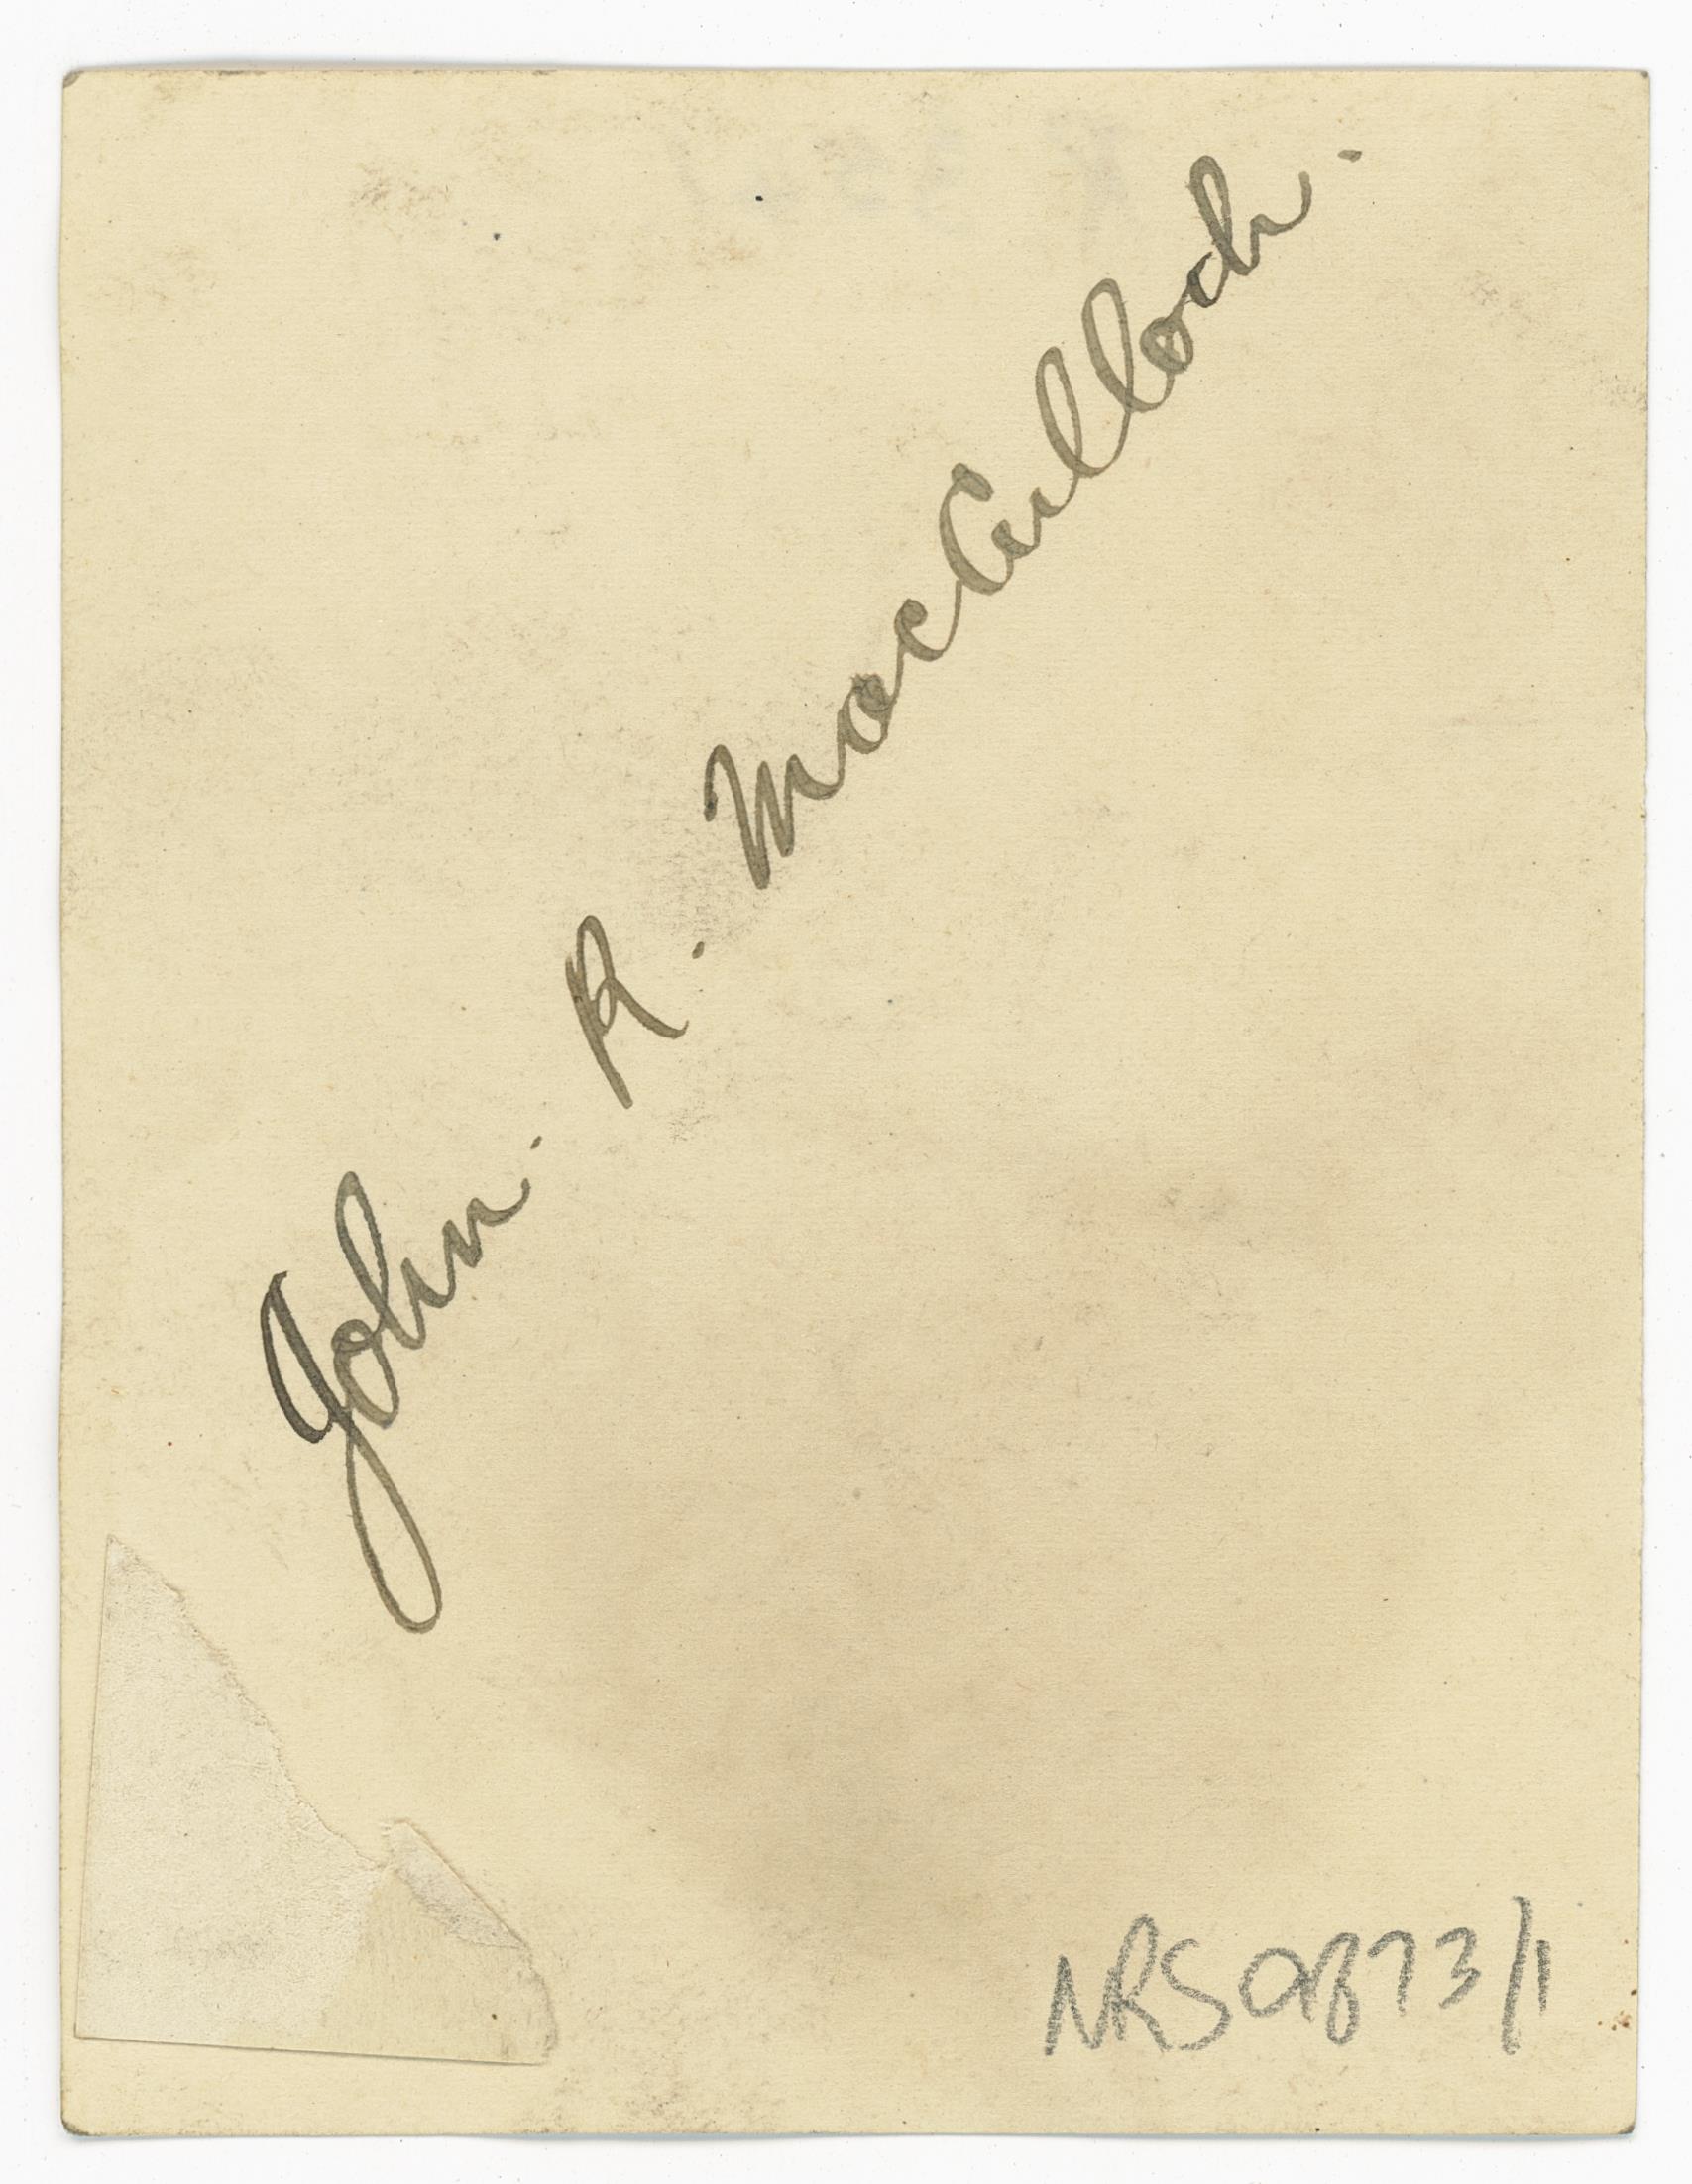 John. R. MacCulloch.
NRS 9873/1